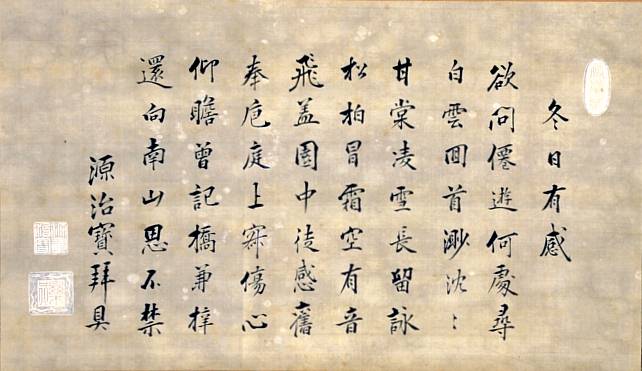 冬日有感
欲問僊遊何處尋
白雲回首渺沈〻
甘棠凌雪長留詠
松柏冒霜空有音
飛蓋園中徒感舊
奉巵庭上寐傷心
仰瞻曾記橋兼梓
還向南山思不禁
源治寶拜具